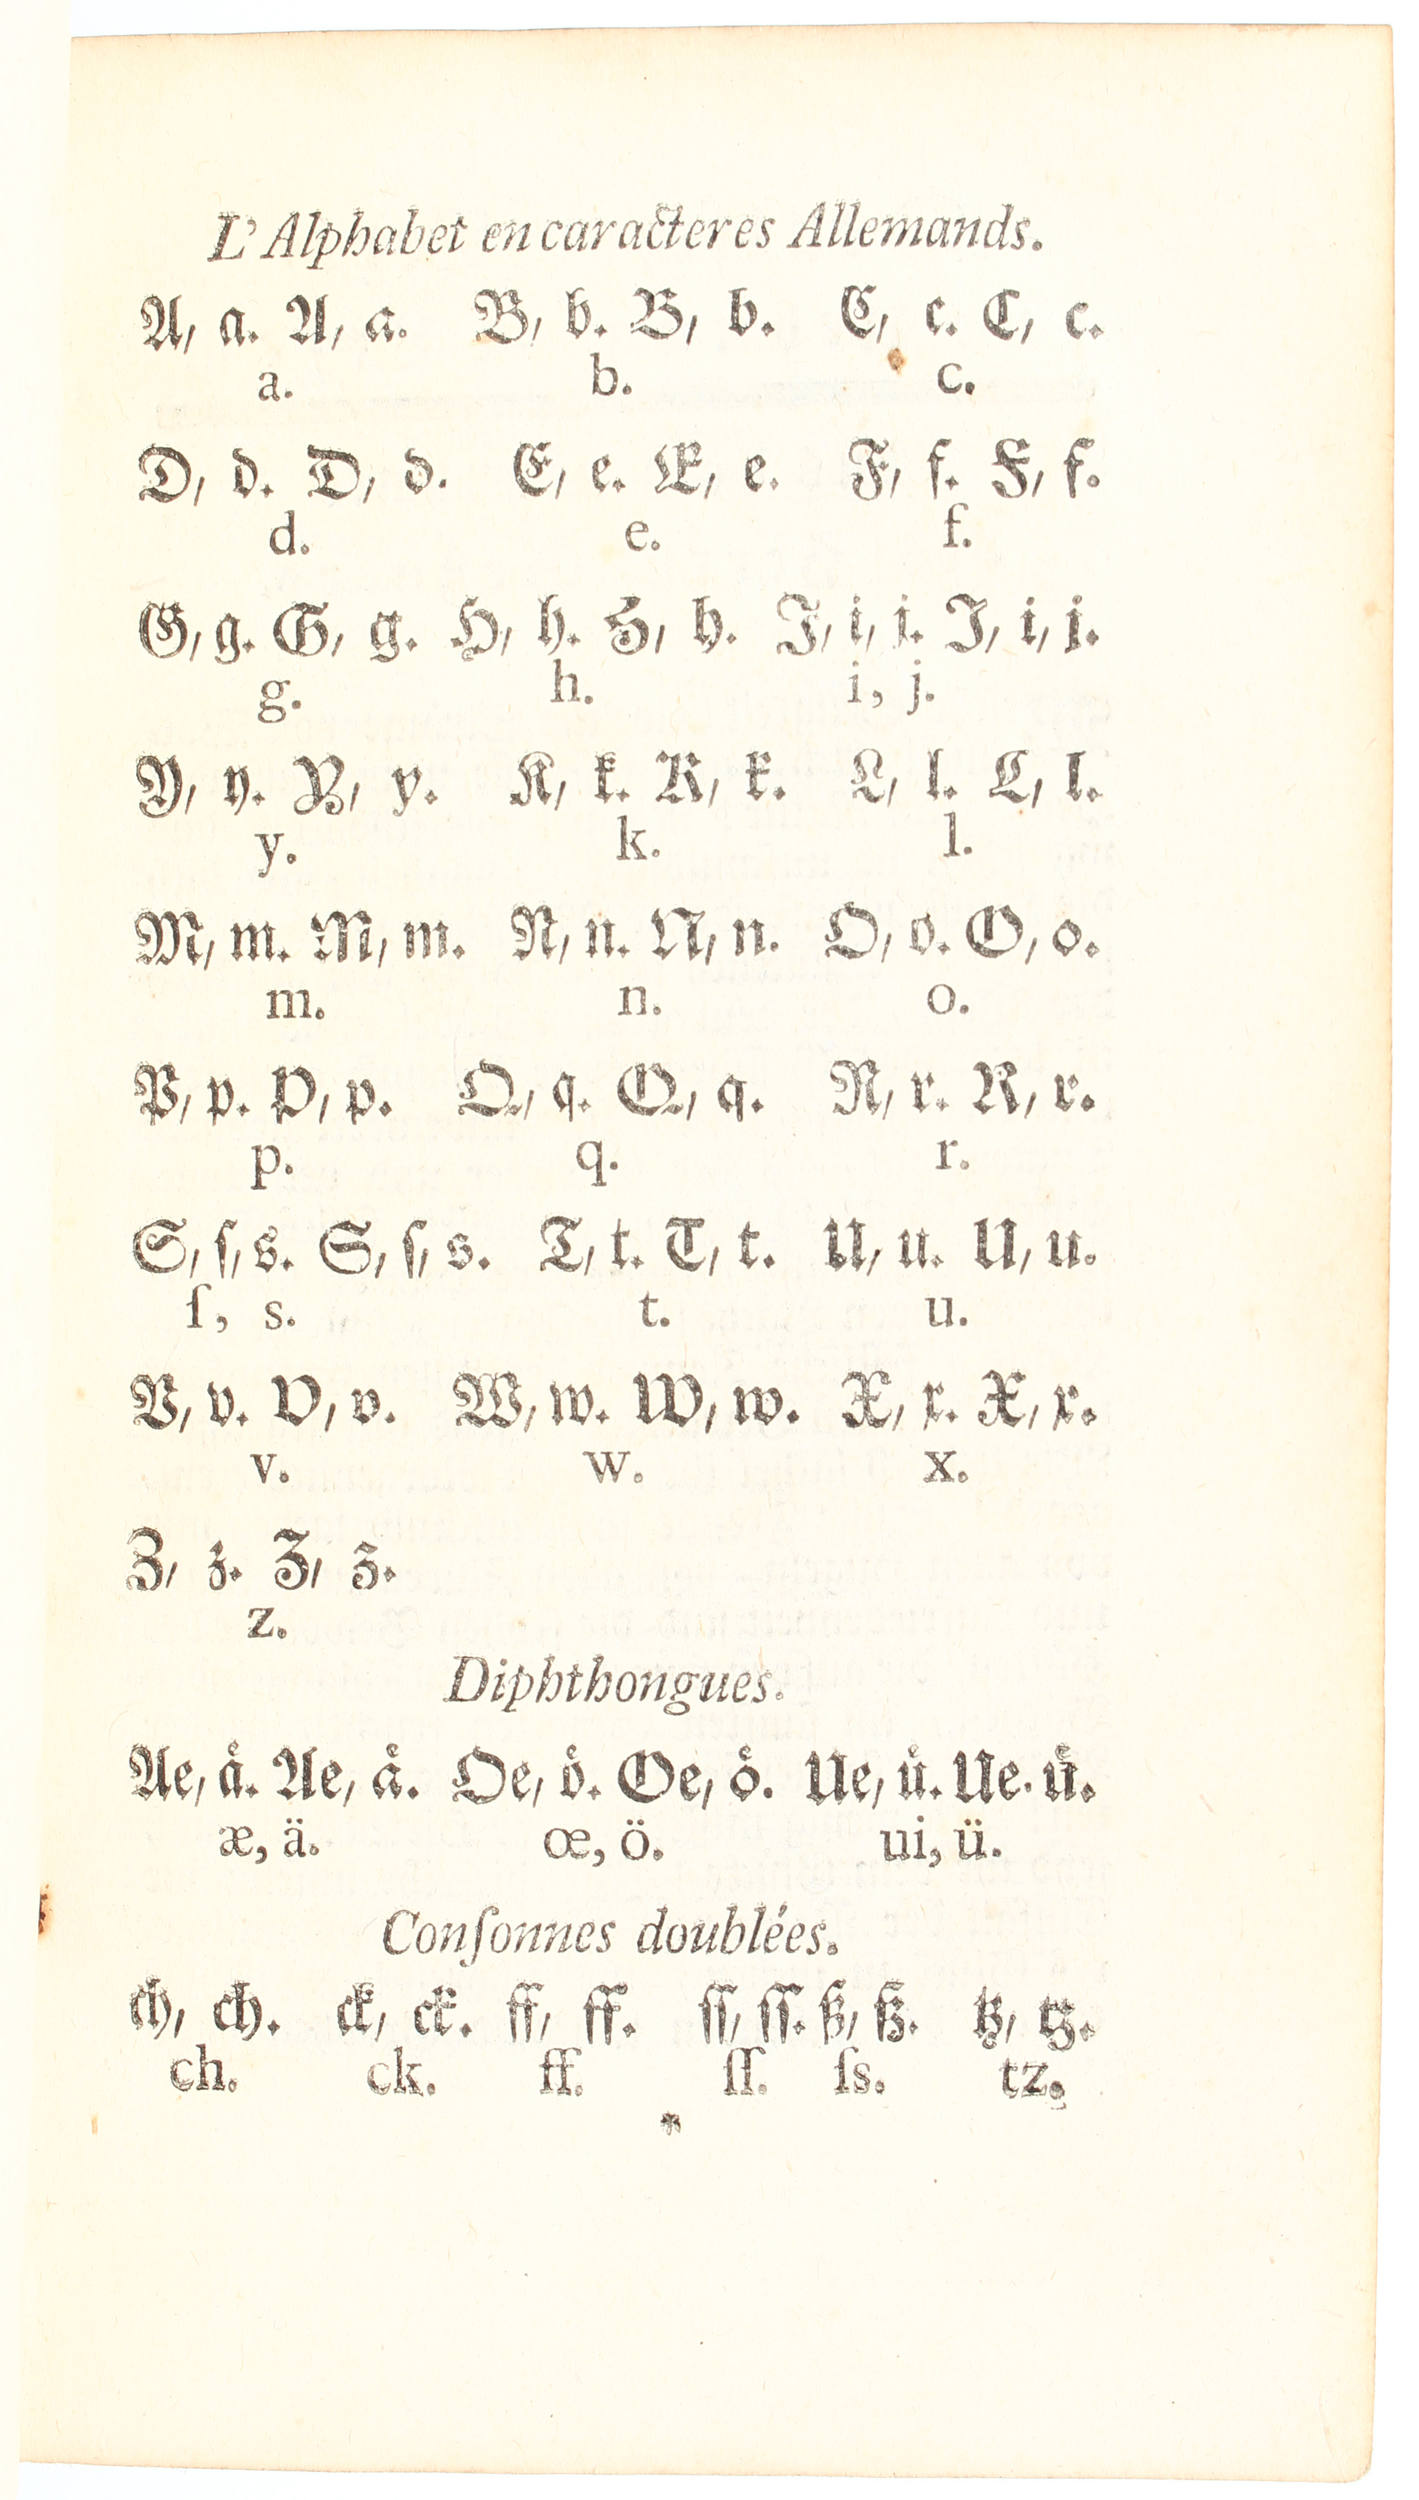 L'Alphabet en caracteres Allemands.
A, a. A, a. B, b. B, b. C, c. C, c.
a. b. c.
D, d. D, d. E, e. E, e. F, f. F, f.
d. e. f.
G, g. G, g. H, h. H, h. J, i, j. J, i, j.
g. h. i, j.
Y, y. Y, y. K, k. K, k. L, l. L, l.
y. k. l.
M, m. M, m. N, n. N, n. O, o. O, o.
m. n. o.
P, p. P, p. Q, q. Q, q. R, r. R, r.
p. q. r.
S, ſ, s. S, ſ, s. T, t. T, t. U, u. U, u.
ſ, s. t. u.
V, v. V, v. W, w. W, w. X, x. X, x.
v. w. x.
Z, z. Z, z.
z.
Diphthongues.
Ae, aͤ. Ae, aͤ. Oe, oͤ. Oe, oͤ. Ue, uͤ. Ue. uͤ.
æ, ä. œ, ö. ui, ü.
Conſonnes doublées.
ch, ch. ck, ck. ff, ff. ſſ, ſſ. ß, ß. tz, tz.
ch. ck. ff. ſſ. ſs. tz.
*